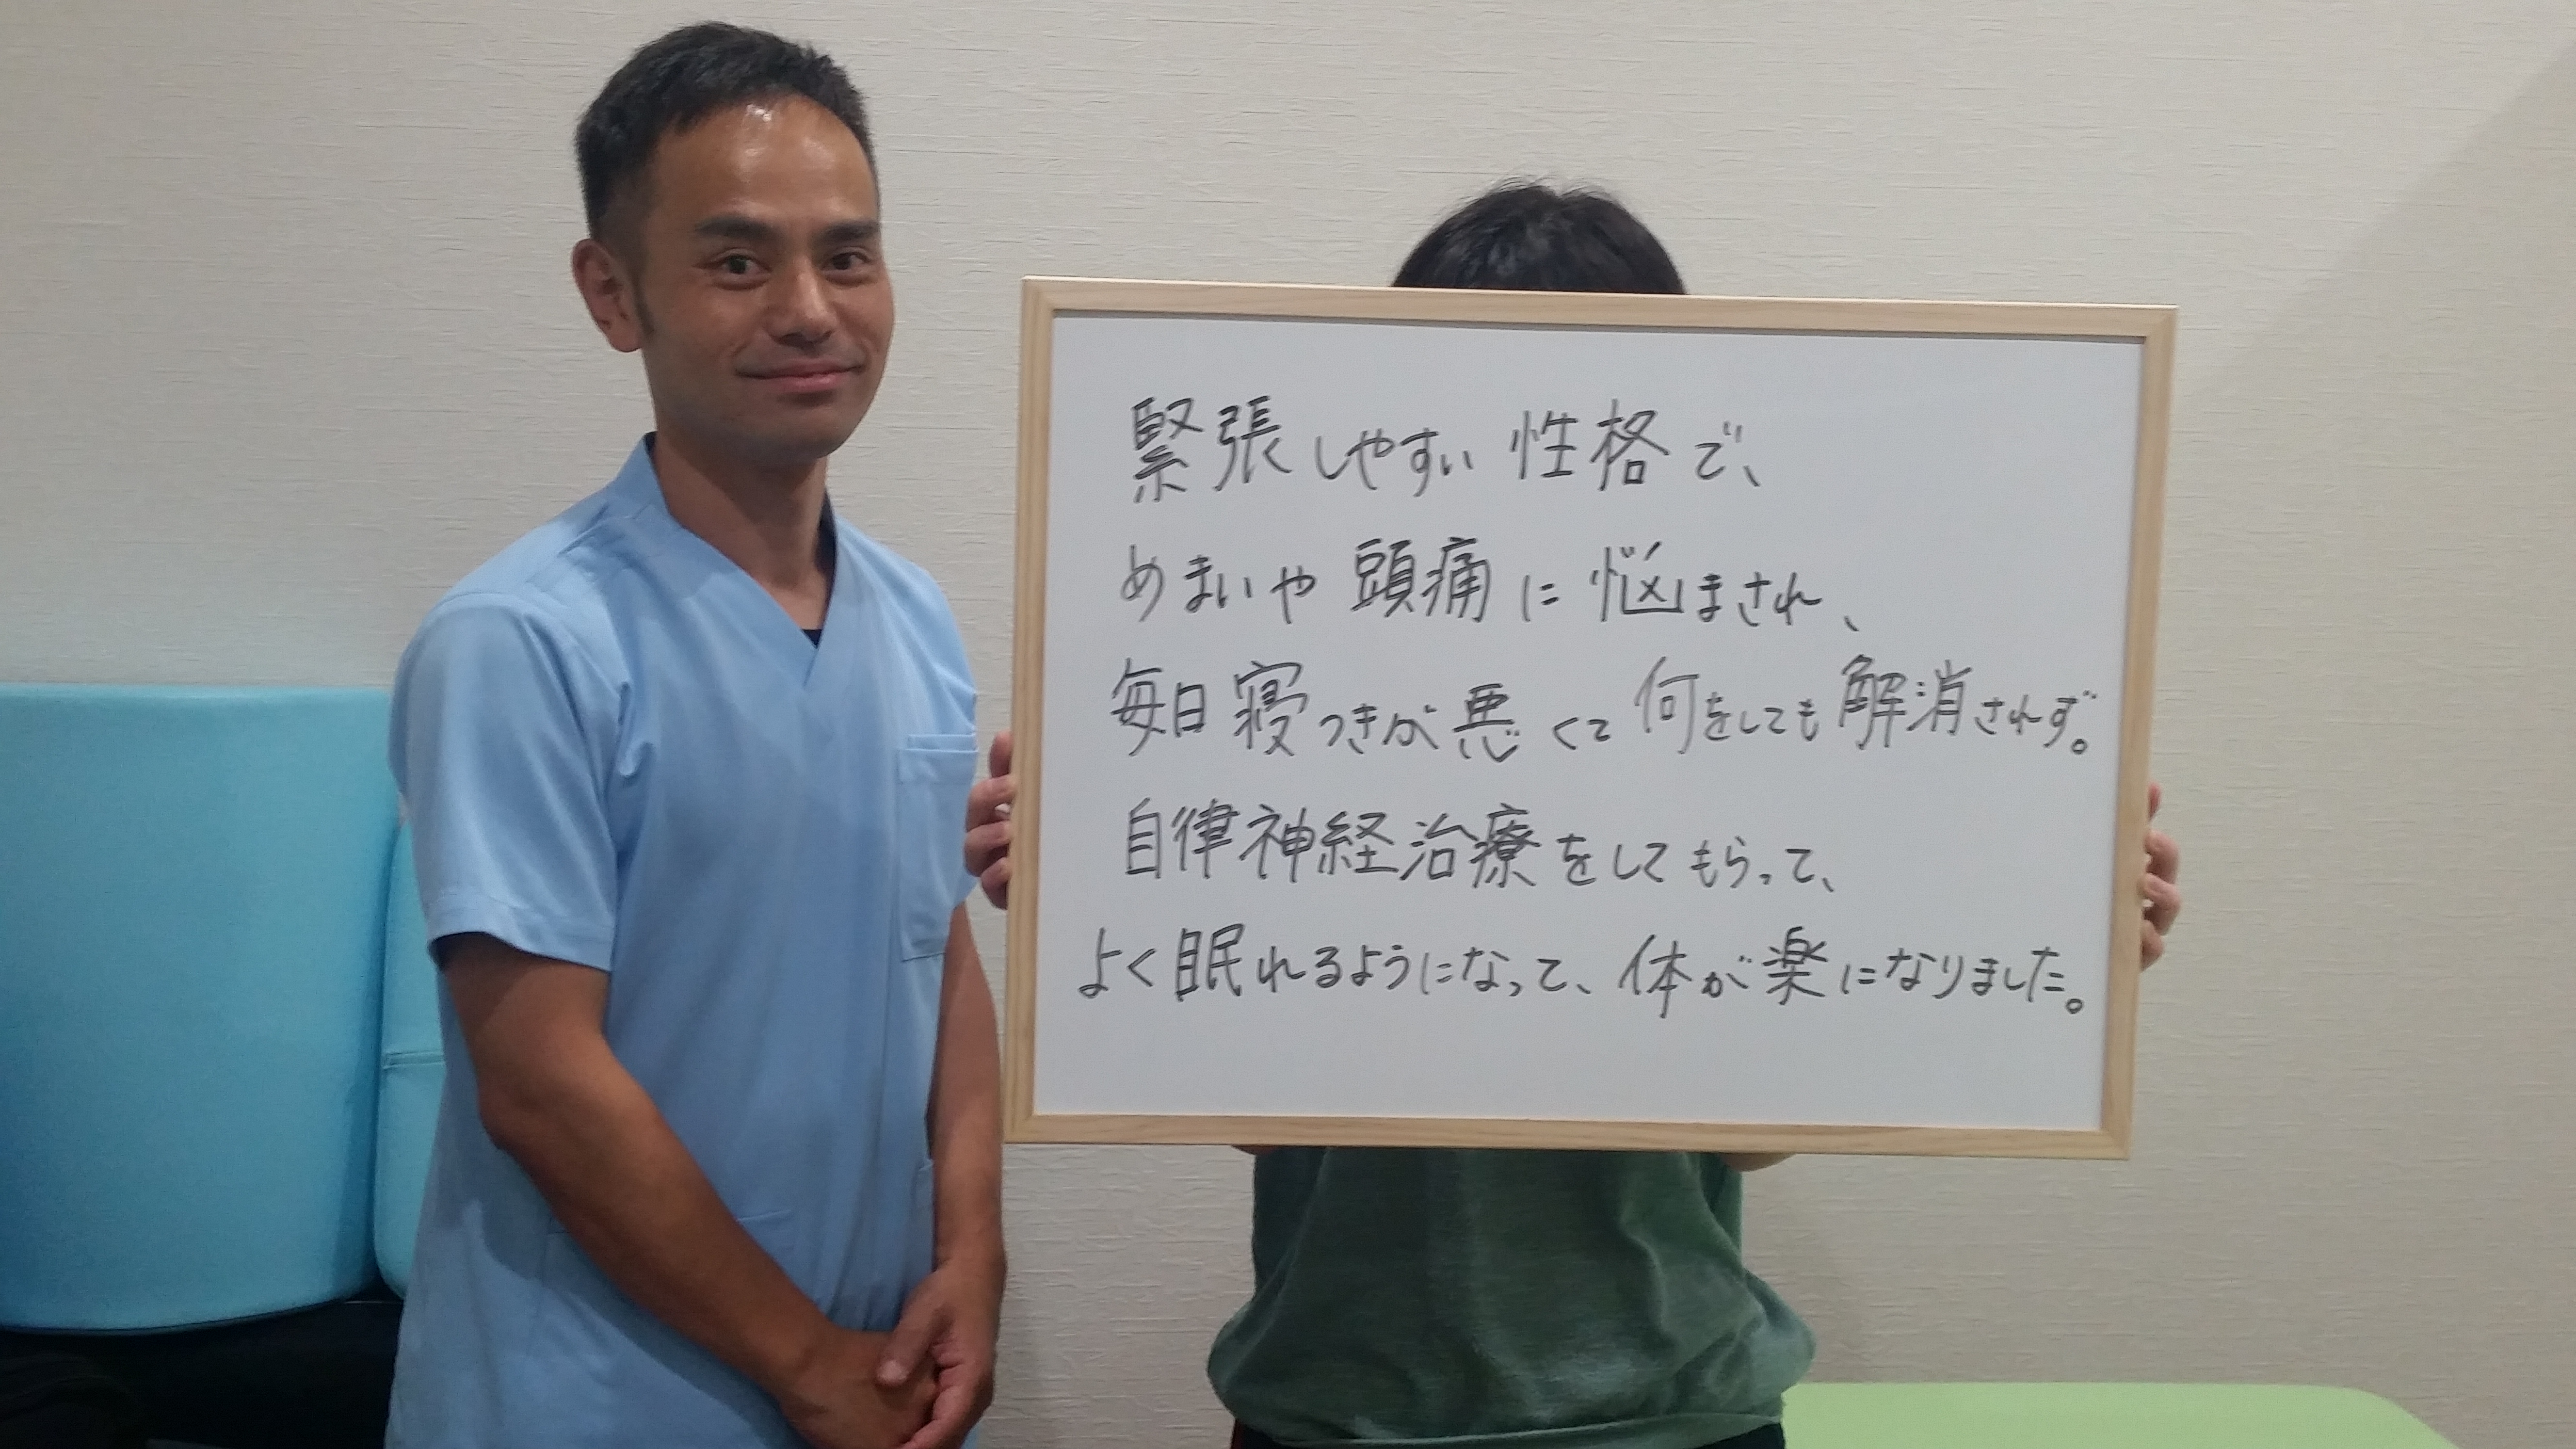 緊張しやすい性格で、
めまいや頭痛に悩まされ、
毎日寝つきが悪くて何をしても解消されず。
自律神経治療をしてもらって、
よく眠れるようになって、体が楽になりました。